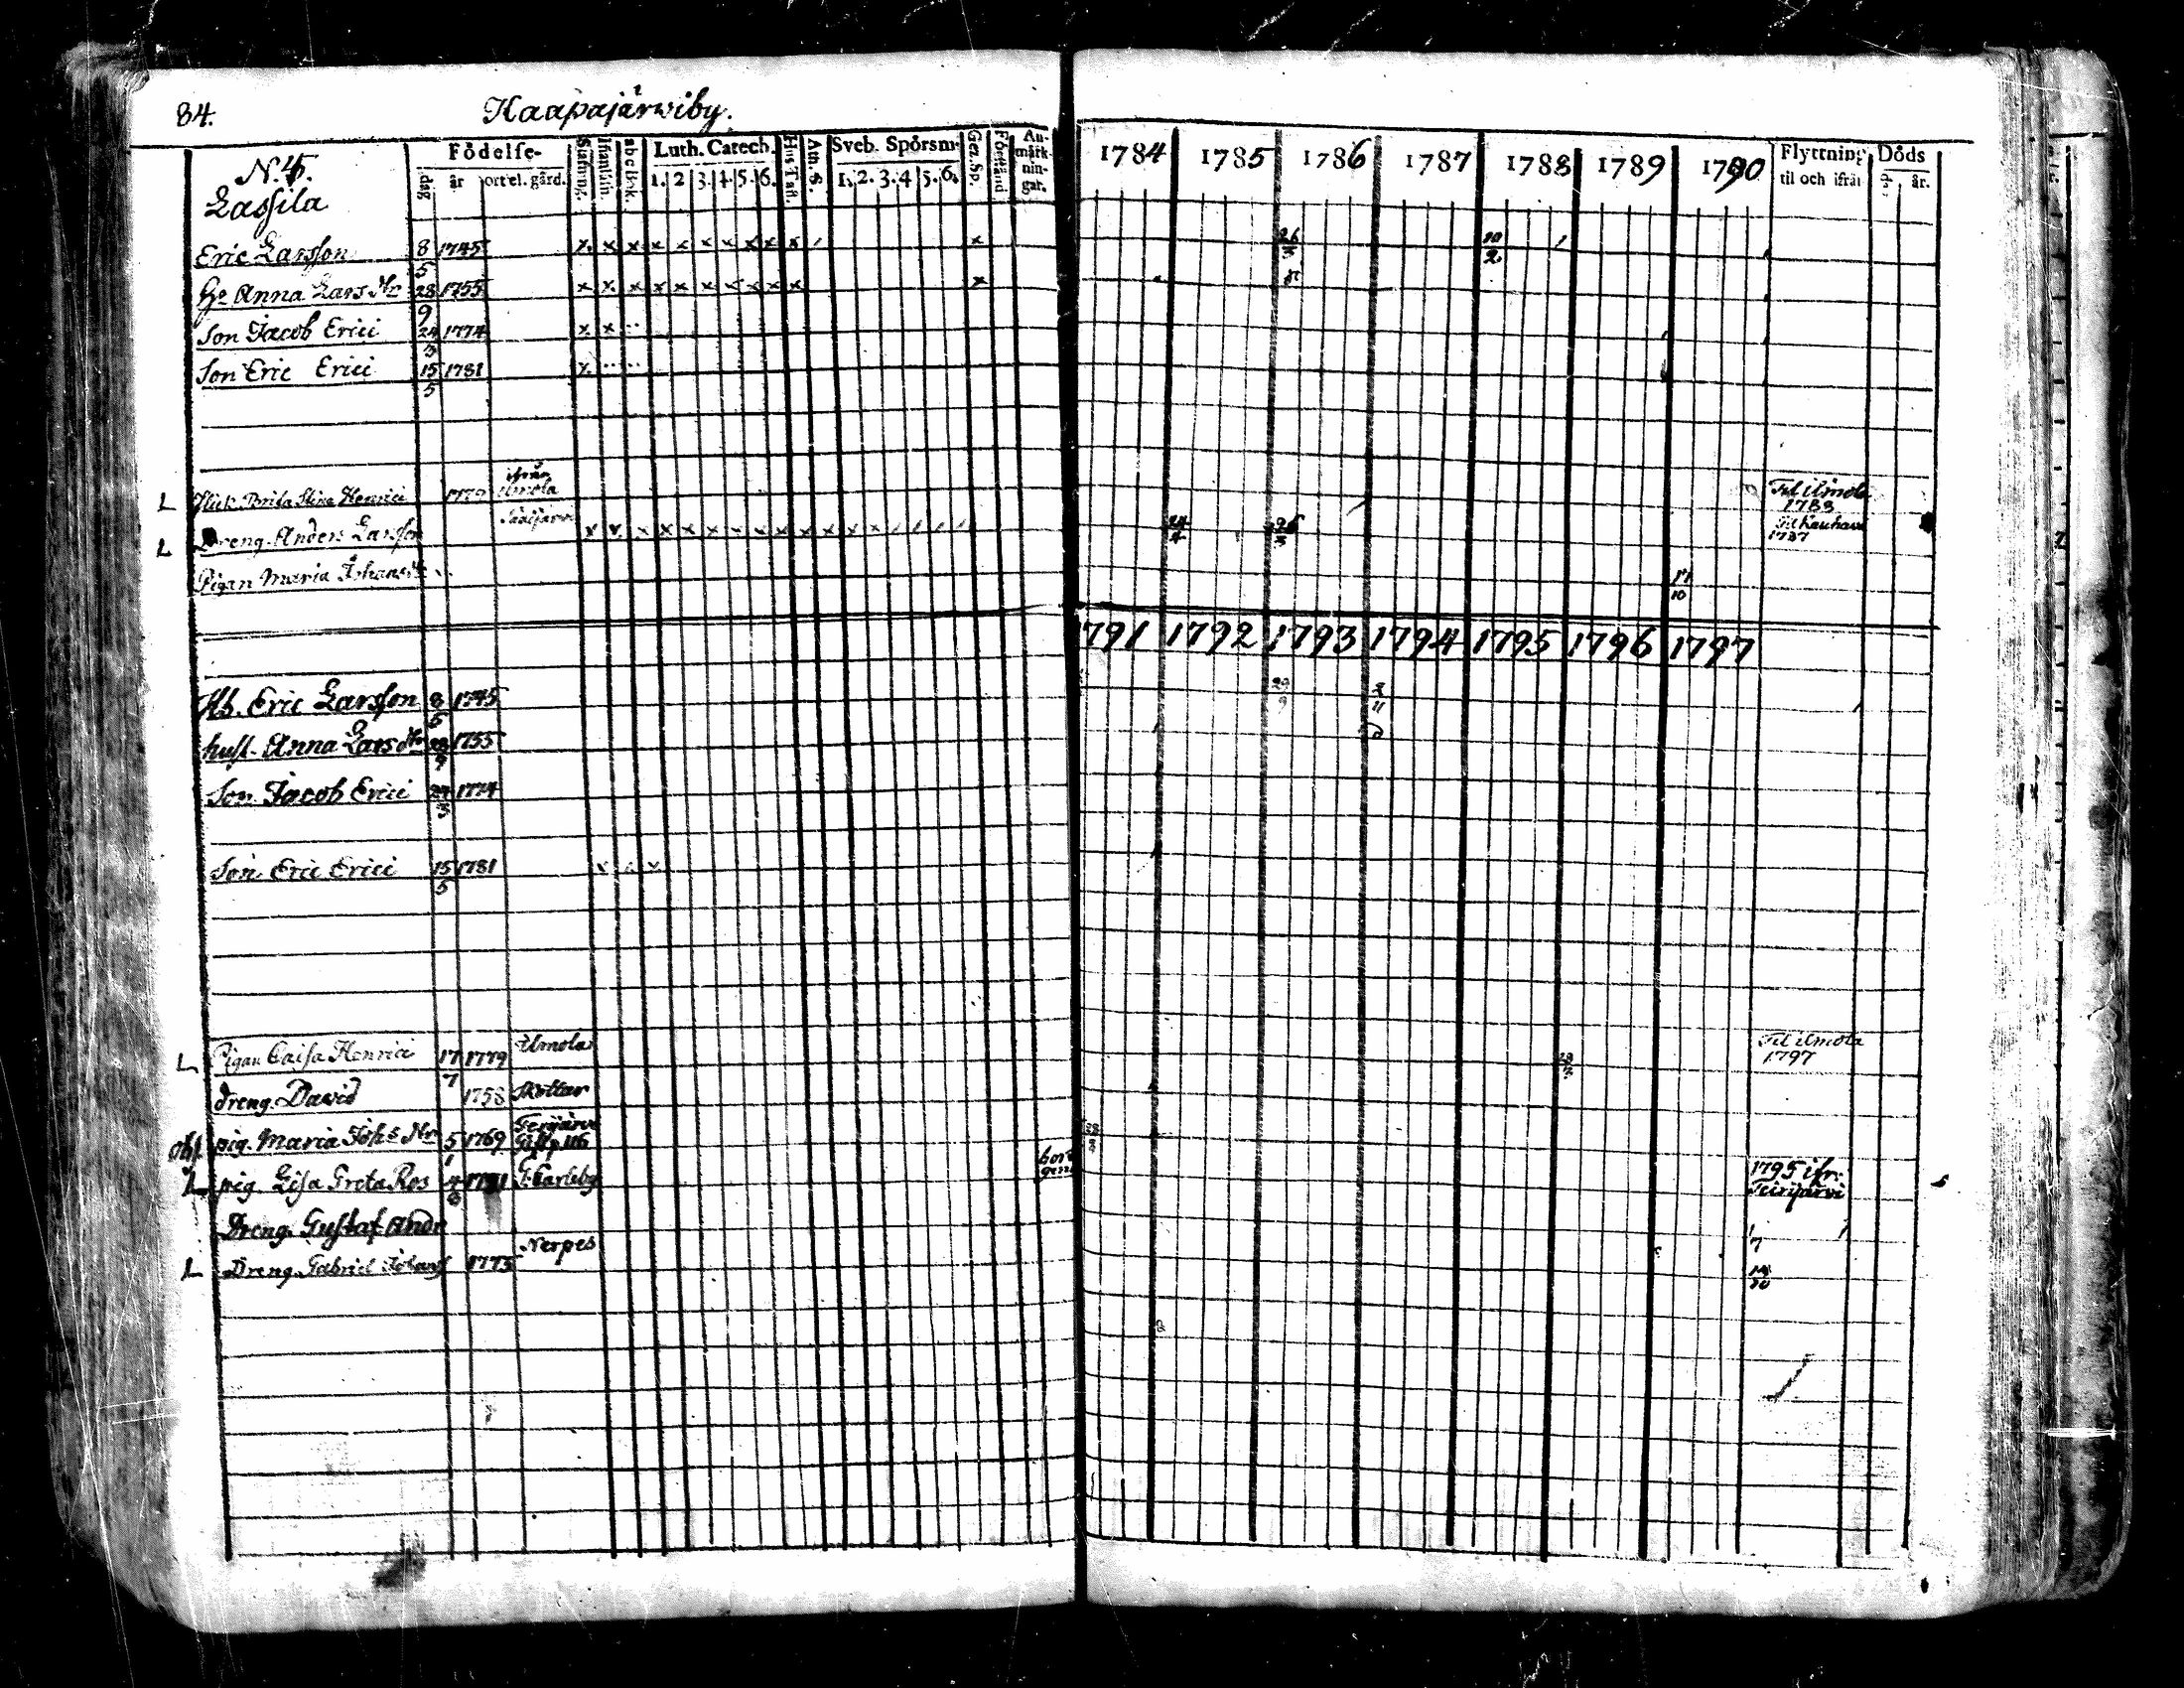 84. Kaapajärwiby.
N. 4.
Lassila
Födelse-
dag år ort el. gård.
Stafning. Innanläs. abc Bok. Luth. Catech. Hus Tafl. Ath. S. Sveb. Spörsm. Gez. Sp. Förstånd Anmärk-nin-gar.
1. 2 3. 4. 5. 6. 1. 2. 3. 4 5. 6.
1784 1785 1786 1787 1788 1789 1790 Flyttning til och ifrån Döds år.
Eric Larsson 8/5 1745 26/3 10/2
Hu Anna Lars dr 28/9 1755
Son Jacob Erici 24/3 1774
Son Eric Erici 15/5 1781
Brita Stina Henrici ifrån Ilmola Til ilmola 1788
Dreng. Anders Larsson Til Kauhava 1787
Pigan Maria Johans dr 11/10
1791 1792 1793 1794 1795 1796 1797
Hb. Eric Larsson 8/5 1745 29/9 2/11
hust. Anna Lars dr 28/9 1755
Son Jacob Erici 24/3 1774
Son Eric Erici 15/5 1781
L Pigan Caisa Henrici 17/7 1779 Ilmola Til ilmola 1797
dreng. David 1758 Skottar
obs. pig. Maria Joh: dr 5/1 1769 Terijärvi
L pig. Lisa Greta Ros G: Carleby 1795 ifr: Teirijärvi
Dreng. Gustaf Andr
L Dreng. Gabriel Johans 1775 Nerpes